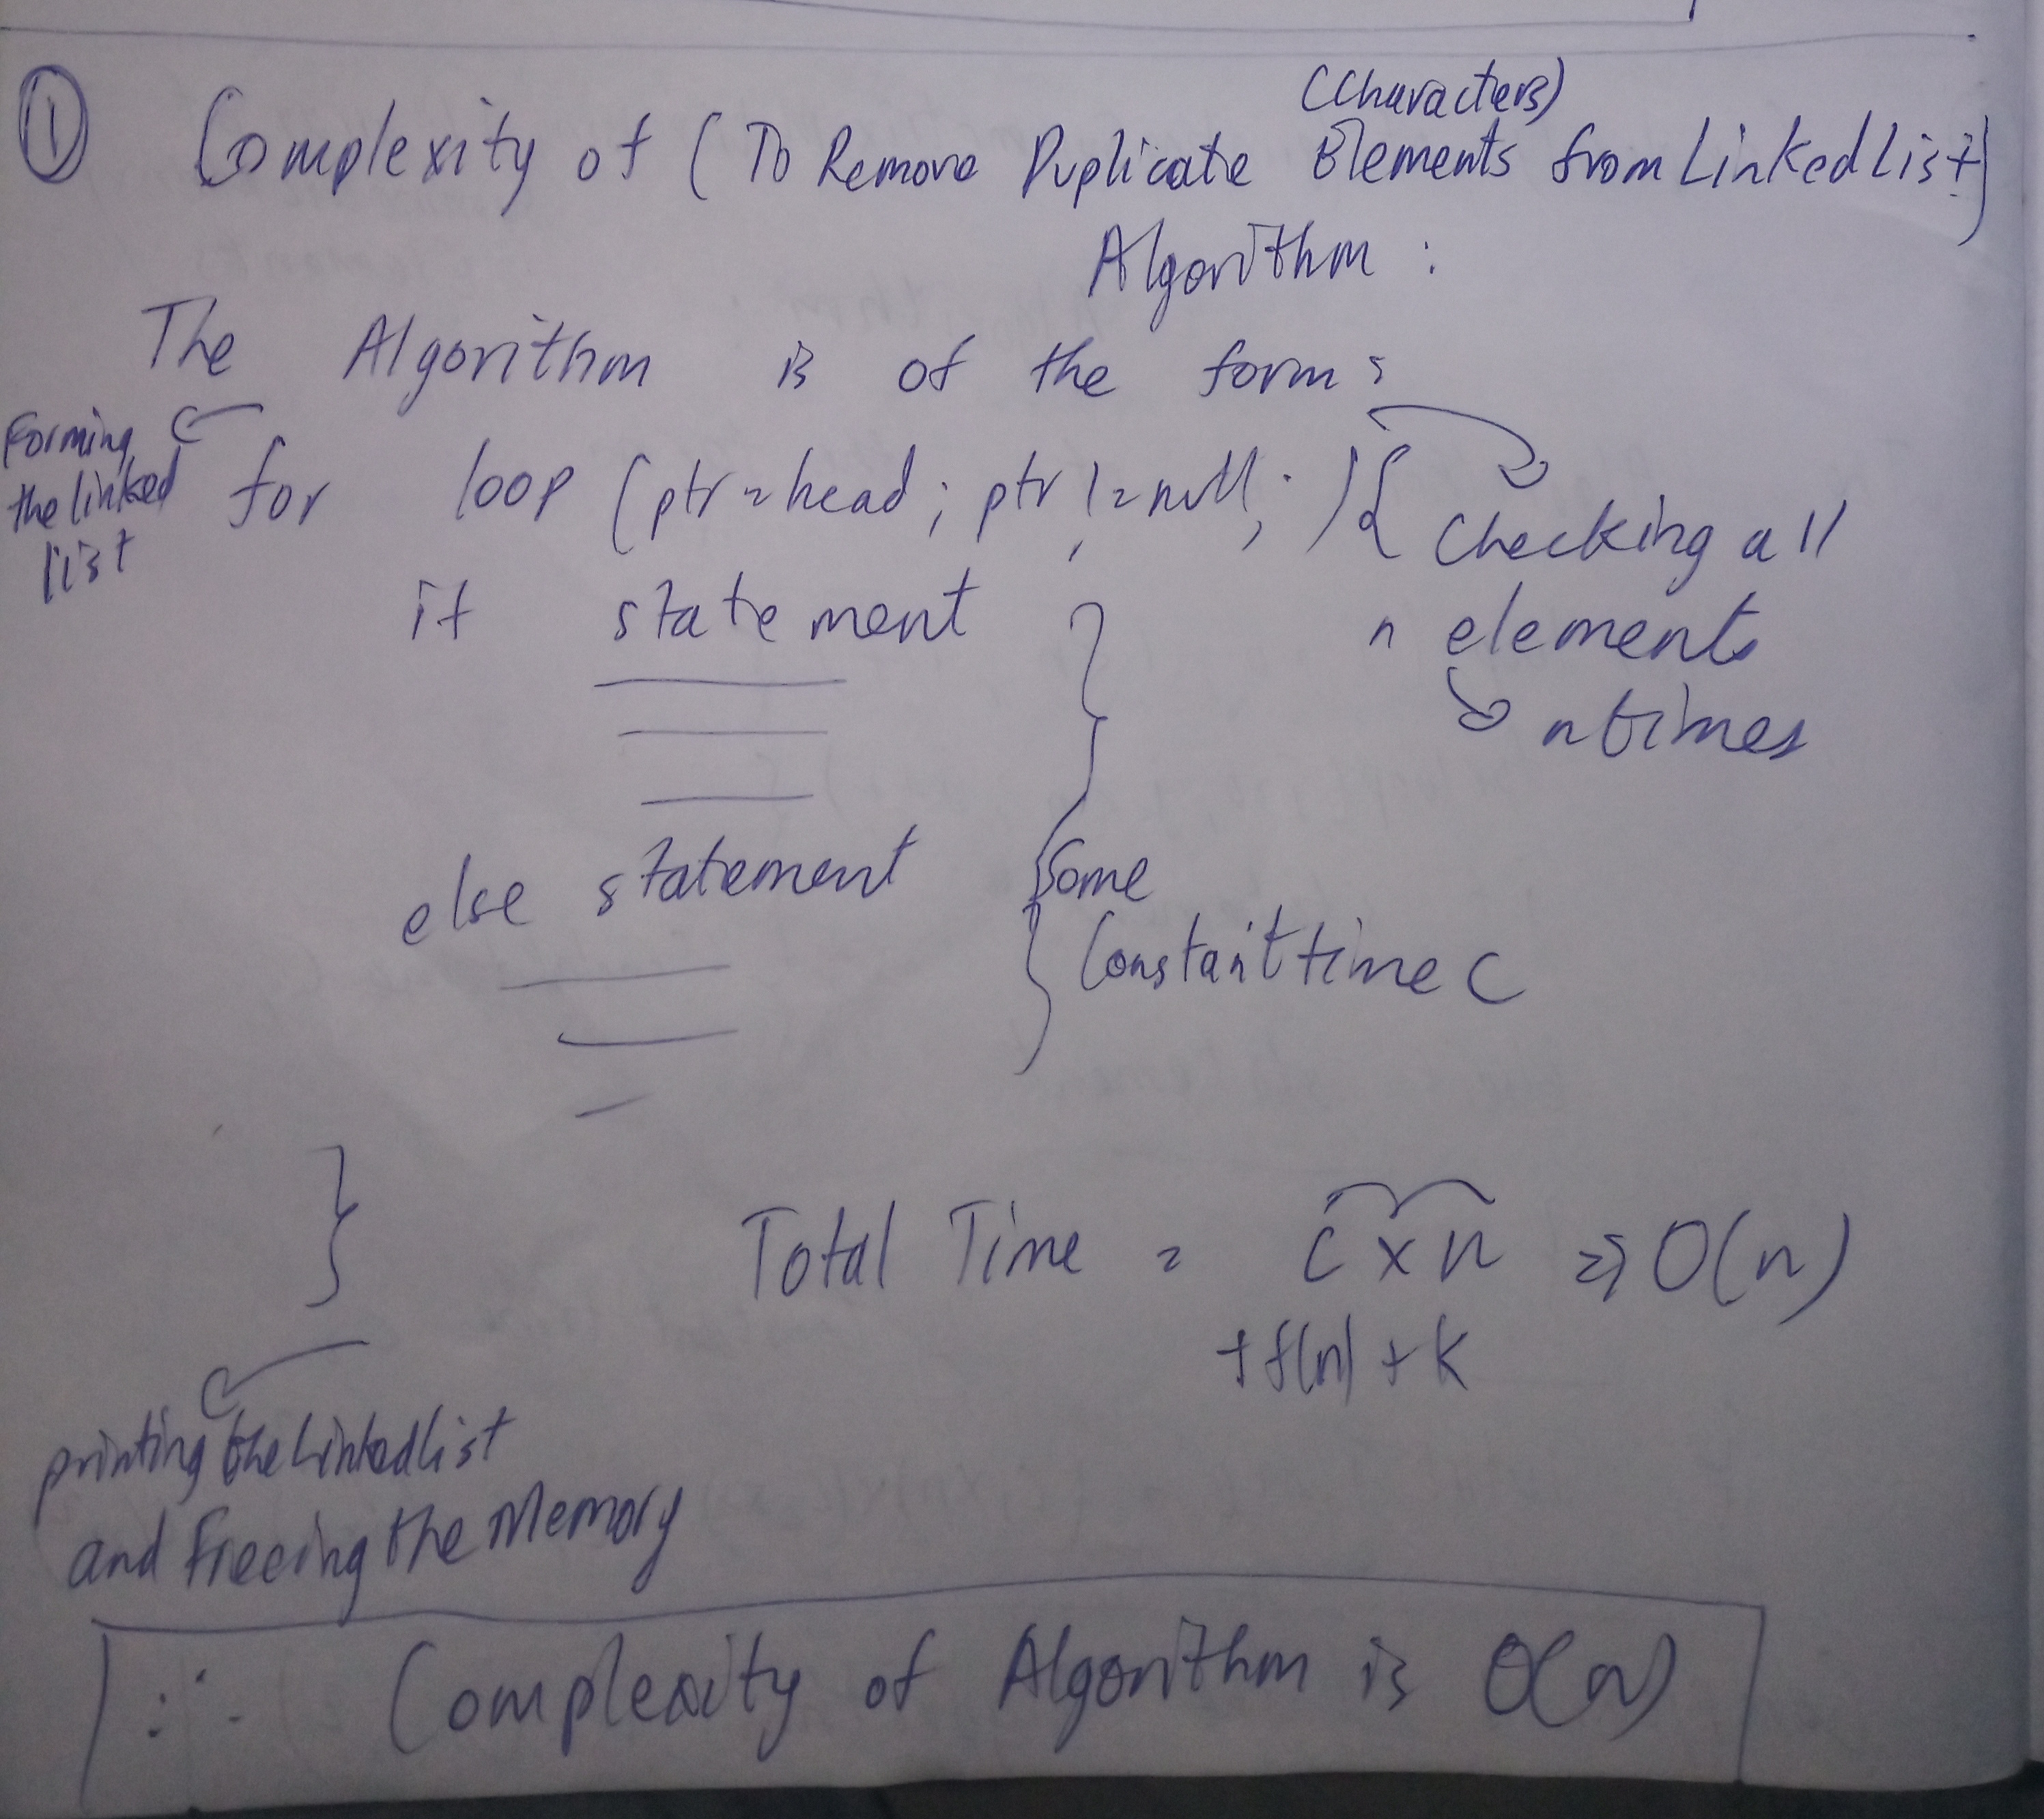 ① Complexity of (To Remove Duplicate Elements from Linked List)
(Characters)
Algorithm :
The Algorithm is of the form :
Forming
the linked
list
for loop (ptr = head ; ptr != null ; ) {
Checking all
n elements
n times
if statement
else statement
Some
Constant time C
}
Total Time = C x n => O(n)
+ f(n) + K
printing the Linked list
and Freeing the Memory
∴ Complexity of Algorithm is O(n)